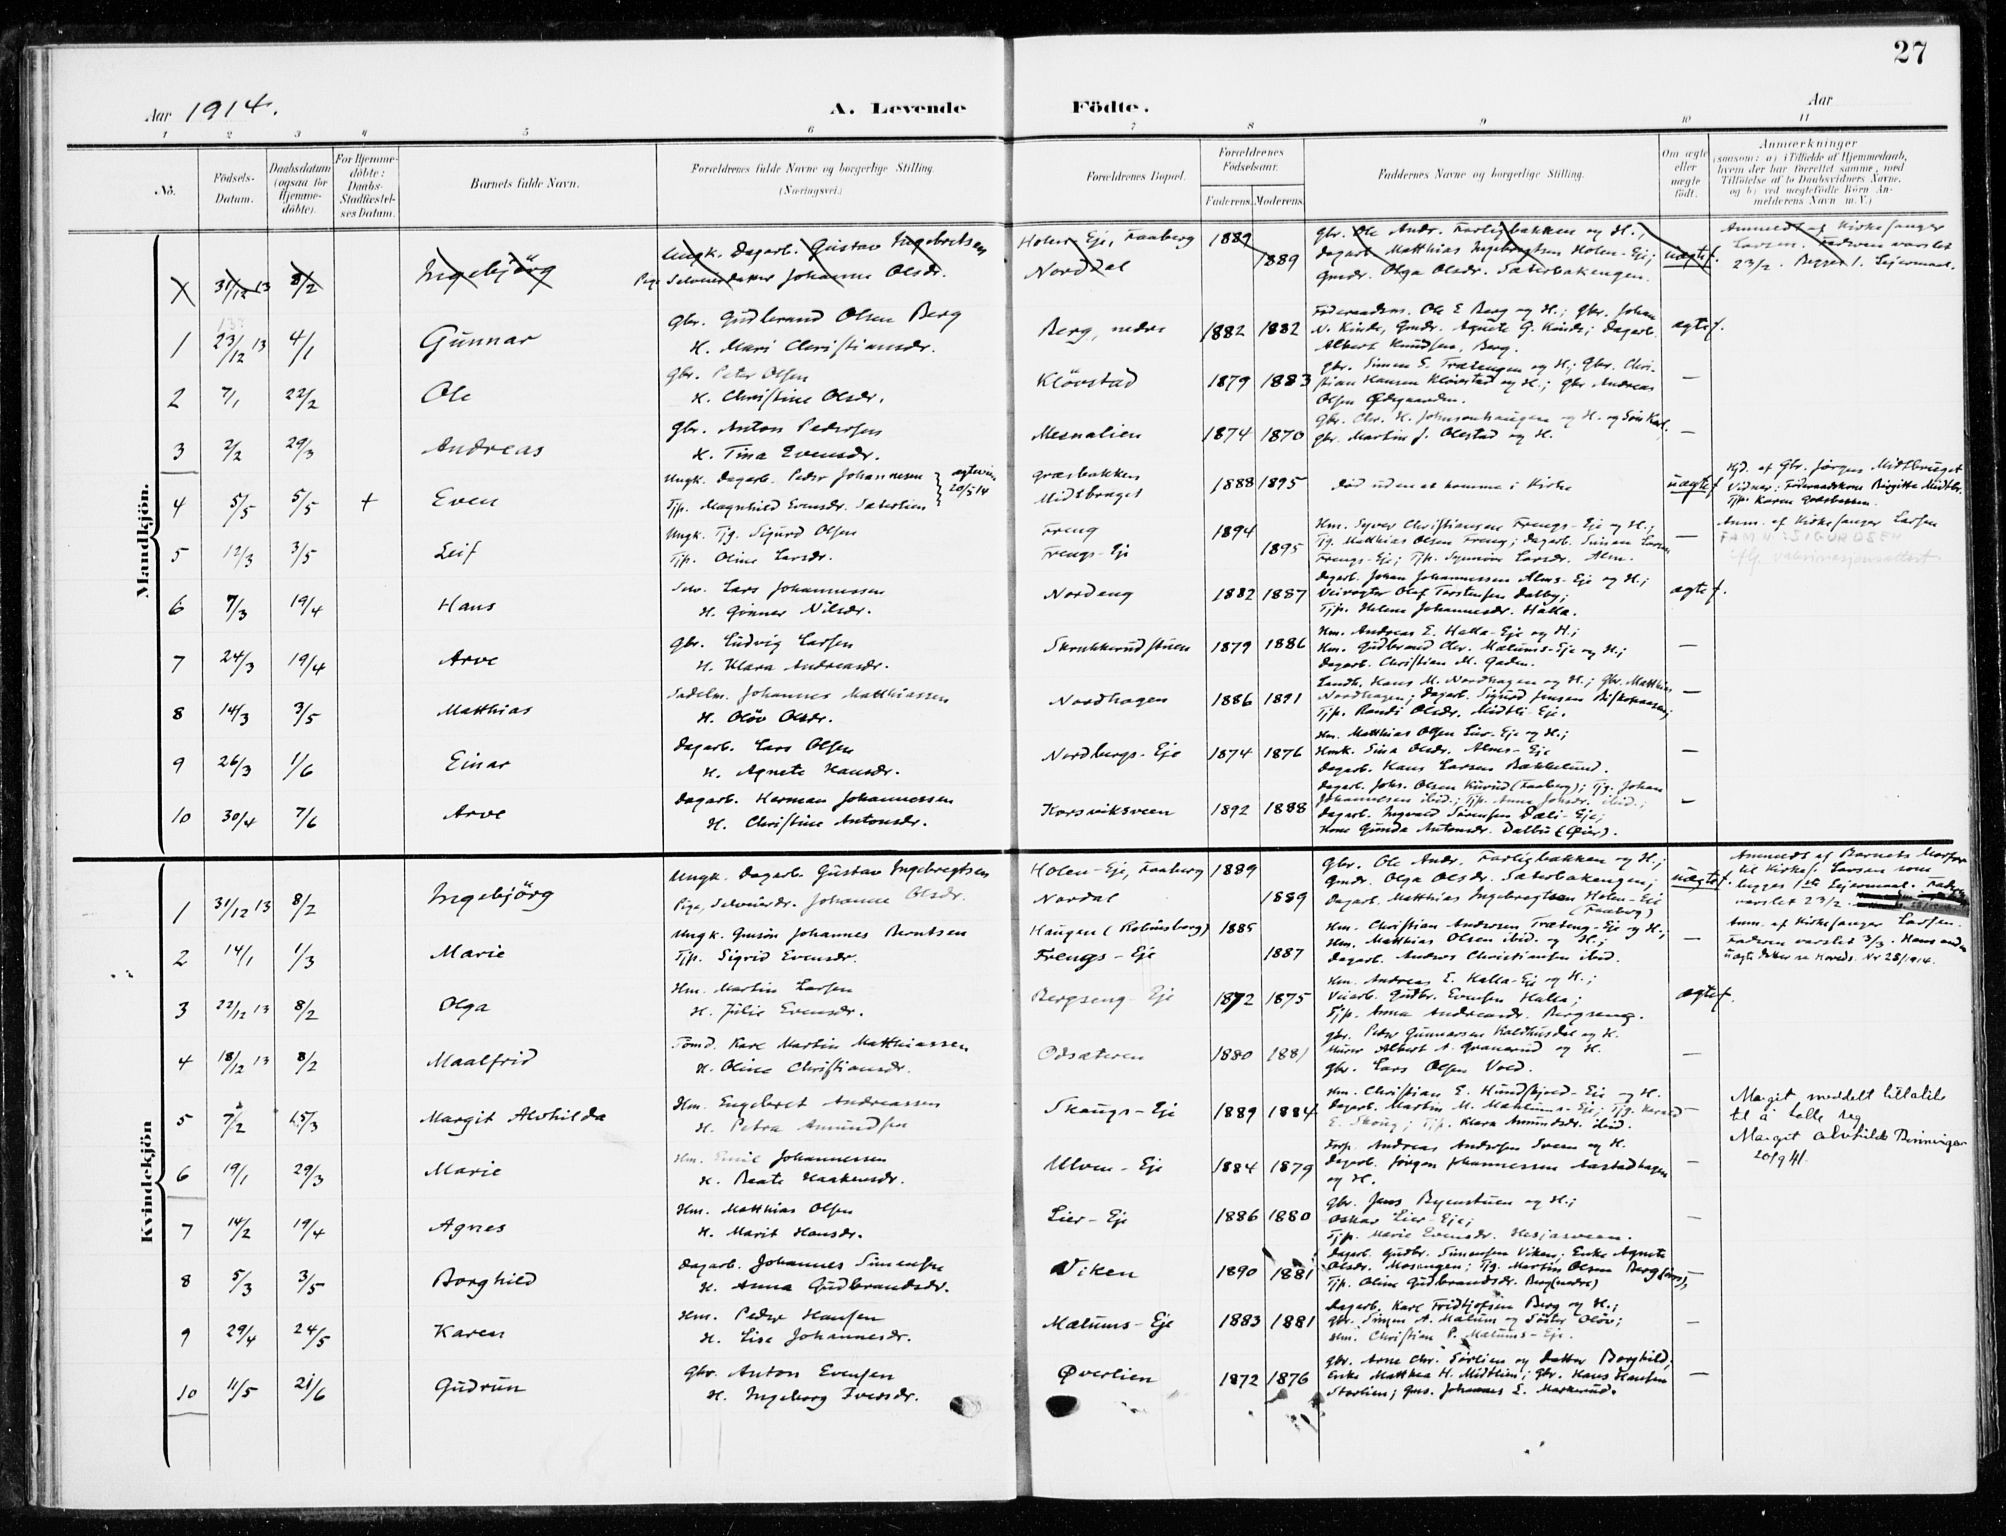 27
Aar 1914. A. Levende Födte. Aar
1 2 3 4 5 6 7 8 9 10 11
No. Födsels-Datum. Daabsdatum (ogsaa for Hjemmedöbte). For Hjemmedöbte: Daabs-Stadfæstelses Datum. Barnets fulde Navn. Forældrenes fulde Navne og borgerlige Stilling. (Næringsvei.) Forældrenes Bopæl. Forældrenes Födselsaar. Faderens. Moderens. Faddernes Navne og borgerlige Stilling. Om ægte eller uægte födt. Anmærkninger (saasom: a) i Tilfælde af Hjemmedaab, hvem der har forrettet samme, med Tilföielse af to Daabsvidners Navne, og b) ved uægtefödte Börn Anmelderens Navn m. V.)
Mandkjön.
X 31/12 13 8/2 Ingebjörg Ungk. Dagarb. Gustav Ingebretsen Holen-Eje, Faaberg 1889 gbr. Ole Andr. Farligbakken og H.; Anmeldt af Kirkesanger
Pige Johanne Olsdr. Norddal 1889 Dagarb. Matthias Ingebregtsen Holen-Eje; uægtef. Larsen. Faderen varslet
Gmdr. Olga Olsdr. Sæterbakengen. 23/2. Lejermaal.
1 23/12 13 4/1 Gunnar Gbr. Gudbrand Olsen Berg Berg, nedre 1882 1882 Föderaadsm. Ole E Berg og H.; Gbr. Johan
H. Mari Christiansdr. N. Kinde, Gmdr. Agnete G. Kinde; Dagarb. ægtef.
Albert Knudsen, Berg.
2 7/1 22/2 Ole Gbr. Peter Olsen Klövstad 1879 1883 gbr. Simen S. Trætengen og H.; Gbr. Chri-
H. Christine Olsdr. stian Hansen Klövstad og H.; gbr Andreas —
Olsen Ødegaarden.
3 2/2 29/3 Andreas Gbr. Anton Pedersen Mesnalien 1874 1870 Gbr. Chr. H. Johnsenhaugen og H. og Sön Karl,
H. Tina Evensdr. gbr. Martin J. Olestad og H. —
4 5/5 5/5 + Even Ungk. Dagarb. Peder Johannesen ægtevies Græsbakken 1888 1895 Död uden at komme i Kirke uægtef Hjd. af Gbr. Jørgen Midtbruget
Tjp. Magnhild Evensdr. Sæterlien 20/5 14 Midtbruget Vidner: Föderaadskone Birgitte Midtbr.
Tjp. Karen Græsbakken.
5 12/3 3/5 Leif Ungk. Tjg. Sigurd Olsen Freng 1894 Hm. Syver Christiansen Frengs-Eje og H.; Anm. af Kirkesanger Larsen
Tjp. Oline Larsdr. Frengs-Eje 1895 Tjg. Matthias Olsen Freng; Dagarb. Simen Larsen — FAM.N: SIGURDSEN
Frengs-Eje; Tjp. Synnöve Larsdr. Alm. iflg. vaksinasjonsattest
6 7/3 19/4 Hans Lars Johannessen Nordeng 1882 1887 Dagarb. Johan Johannessen Alms-Eje og H.;
H. Ginner Nilsdr. Veivogter Olaf Torstensen Dalby; ægtef.
Tjp. Helene Johannesdr. Halla.
7 24/3 19/4 Arve Gbr. Ludvig Larsen Skrukkerudstuen 1879 1886 Hm. Andreas E. Halla-Eje og H.;
H. Klara Andreasdr. Hm. Gudbrand Chr. Mælums-Eje og H.; —
Dagarb. Christian M. Gaden.
8 14/3 3/5 Matthias Sadelm. Johannes Matthiassen Nordhagen 1886 1891 Landh. Hans M. Nordhagen og H.; gbr. Matthias
H. Olöv Olsdr. Nordhagen; Dagarb. Sigurd Jensen —
Tjp. Randi Olsdr. Midtli-Eje.
9 26/3 1/6 Einar Dagarb. Lars Olsen Nordbergs-Eje 1874 1876 Hm. Matthias Olsen Lier-Eje og H.;
H. Agnete Hansdr. Hmk. Sina Olsdr. Alms-Eje —
Dagarb. Hans Larsen Bækkelund.
10 30/4 7/6 Arve Dagarb. Herman Johannessen Korsviksveen 1892 1888 Dagarb. Johs. Olsen Kurud (Faaberg); Tjg. Johan
H. Christine Antonsdr. Johannesen ibid.; Tjp. Anna Johsdr. ibid.; —
Dagarb. Ingvald Sörensen Dæli-Eje;
Kone Gunda Antonsdr. Dalbu (Øier).
Kvindekjön
1 31/12 13 8/2 Ingebjörg Ungk. Dagarb. Gustav Ingebregtsen Holen-Eje, Faaberg 1889 Gbr. Ole Andr. Farligbakken og H.; Anmeldt af Barnets Morfar
Pige, Johanne Olsdr. Nordal 1889 Gmdr. Olga Olsdr. Sæterbakengen; uægtef. til Kirkes. Larsen som
Dagarb. Matthias Ingebregtsen Holen-Eje (Faaberg) begges 1ste Lejermaal. Faderen varslet 23/2.
2 14/1 1/3 Marie Ungk. Gmsön Johannes Berntsen Haugen (Kolmsborg) 1885 Hm. Christian Andersen Træteng-Eje og H.; Anm. af Kirkesanger Larsen.
Tjp. Sigrid Evensdr. Frengs-Eje 1887 Hm. Matthias Olsen ibid. og H.; — Faderen varslet 3/3. Hans andet
Dagarb. Anders Christiansen ibid. uægte Nr 28/1914.
3 22/12 13 8/2 Olga Hm. Martin Larsen Bergseng-Eje 1872 1875 Hm. Andreas E. Halla-Eje og H.;
H. Julie Evensdr. Veiarb. Gudbr. Evensen Halla; ægtef.
Tjp. Anna Andreasdr. Bergseng.
4 18/12 13 8/2 Maalfrid Tömd. Karl Martin Matthiassen Odsæteren 1880 1881 gbr. Peder Gunnarsen Koldhusdal og H.
H. Oline Christiansdr. Murer Albert A. Granerud og H. —
gbr. Lars Olsen Vold.
5 7/2 15/3 Margit Alvhilda Hm. Engebret Andreassen Skougs-Eje 1889 1884 Hm. Christian E. Hundskjold-Eje og H. Margit meddelt tillatelse
H. Petra Amundsen Dagarb. Martin M. Mælums-Eje; Tjg. Harald — til å kalle seg
E. Skoug; Tjp. Klara Amundsdr. ibid. Margit Alvhilde Binningen
20/9 41.
6 19/1 29/3 Marie Hm. Emil Johannessen Ulven-Eje 1884 1879 Forp. Andreas Andersen Sveen og H.
H. Beate Haakensdr. Dagarb. Jörgen Johannessen Aastadhagen —
og H.
7 14/2 19/4 Agnes Hm. Matthias Olsen Lier-Eje 1886 1880 gbr. Jens Byenstuen og H.;
H. Marit Hansdr. Oskar Lier-Eje; —
Tjp. Marie Evensdr. Hesjasveen.
8 5/3 3/5 Borghild Dagarb. Johannes Simensen Viken 1890 1881 Dagarb. Gudbr. Simensen Viken; Enke Agnete
H. Anna Gudbrandsdr. Olsdr. Mosengen; Tjg. Martin Olsen Berg (øvre); —
Tjp. Oline Gudbrandsdr. Berg (nedre)
9 29/4 24/5 Karen Hm. Peder Hansen Mælums-Eje 1883 1881 Dagarb. Karl Fridtjofsen Berg og H.;
H. Lise Johannesdr. gbr. Simen A. Mælum og Söster Olöv; —
Hm. Christian P. Mælums-Eje.
10 11/5 21/6 Gudrun Gbr. Anton Evensen Øverlien 1872 1876 gbr. Arne Chr. Sörlien og Datter Borghild,
H. Ingeborg Iversdr. Enke Matthea H. Midtlien; Gbr. Hans Hansen —
Storlien; Gms. Johannes E. Markerud.